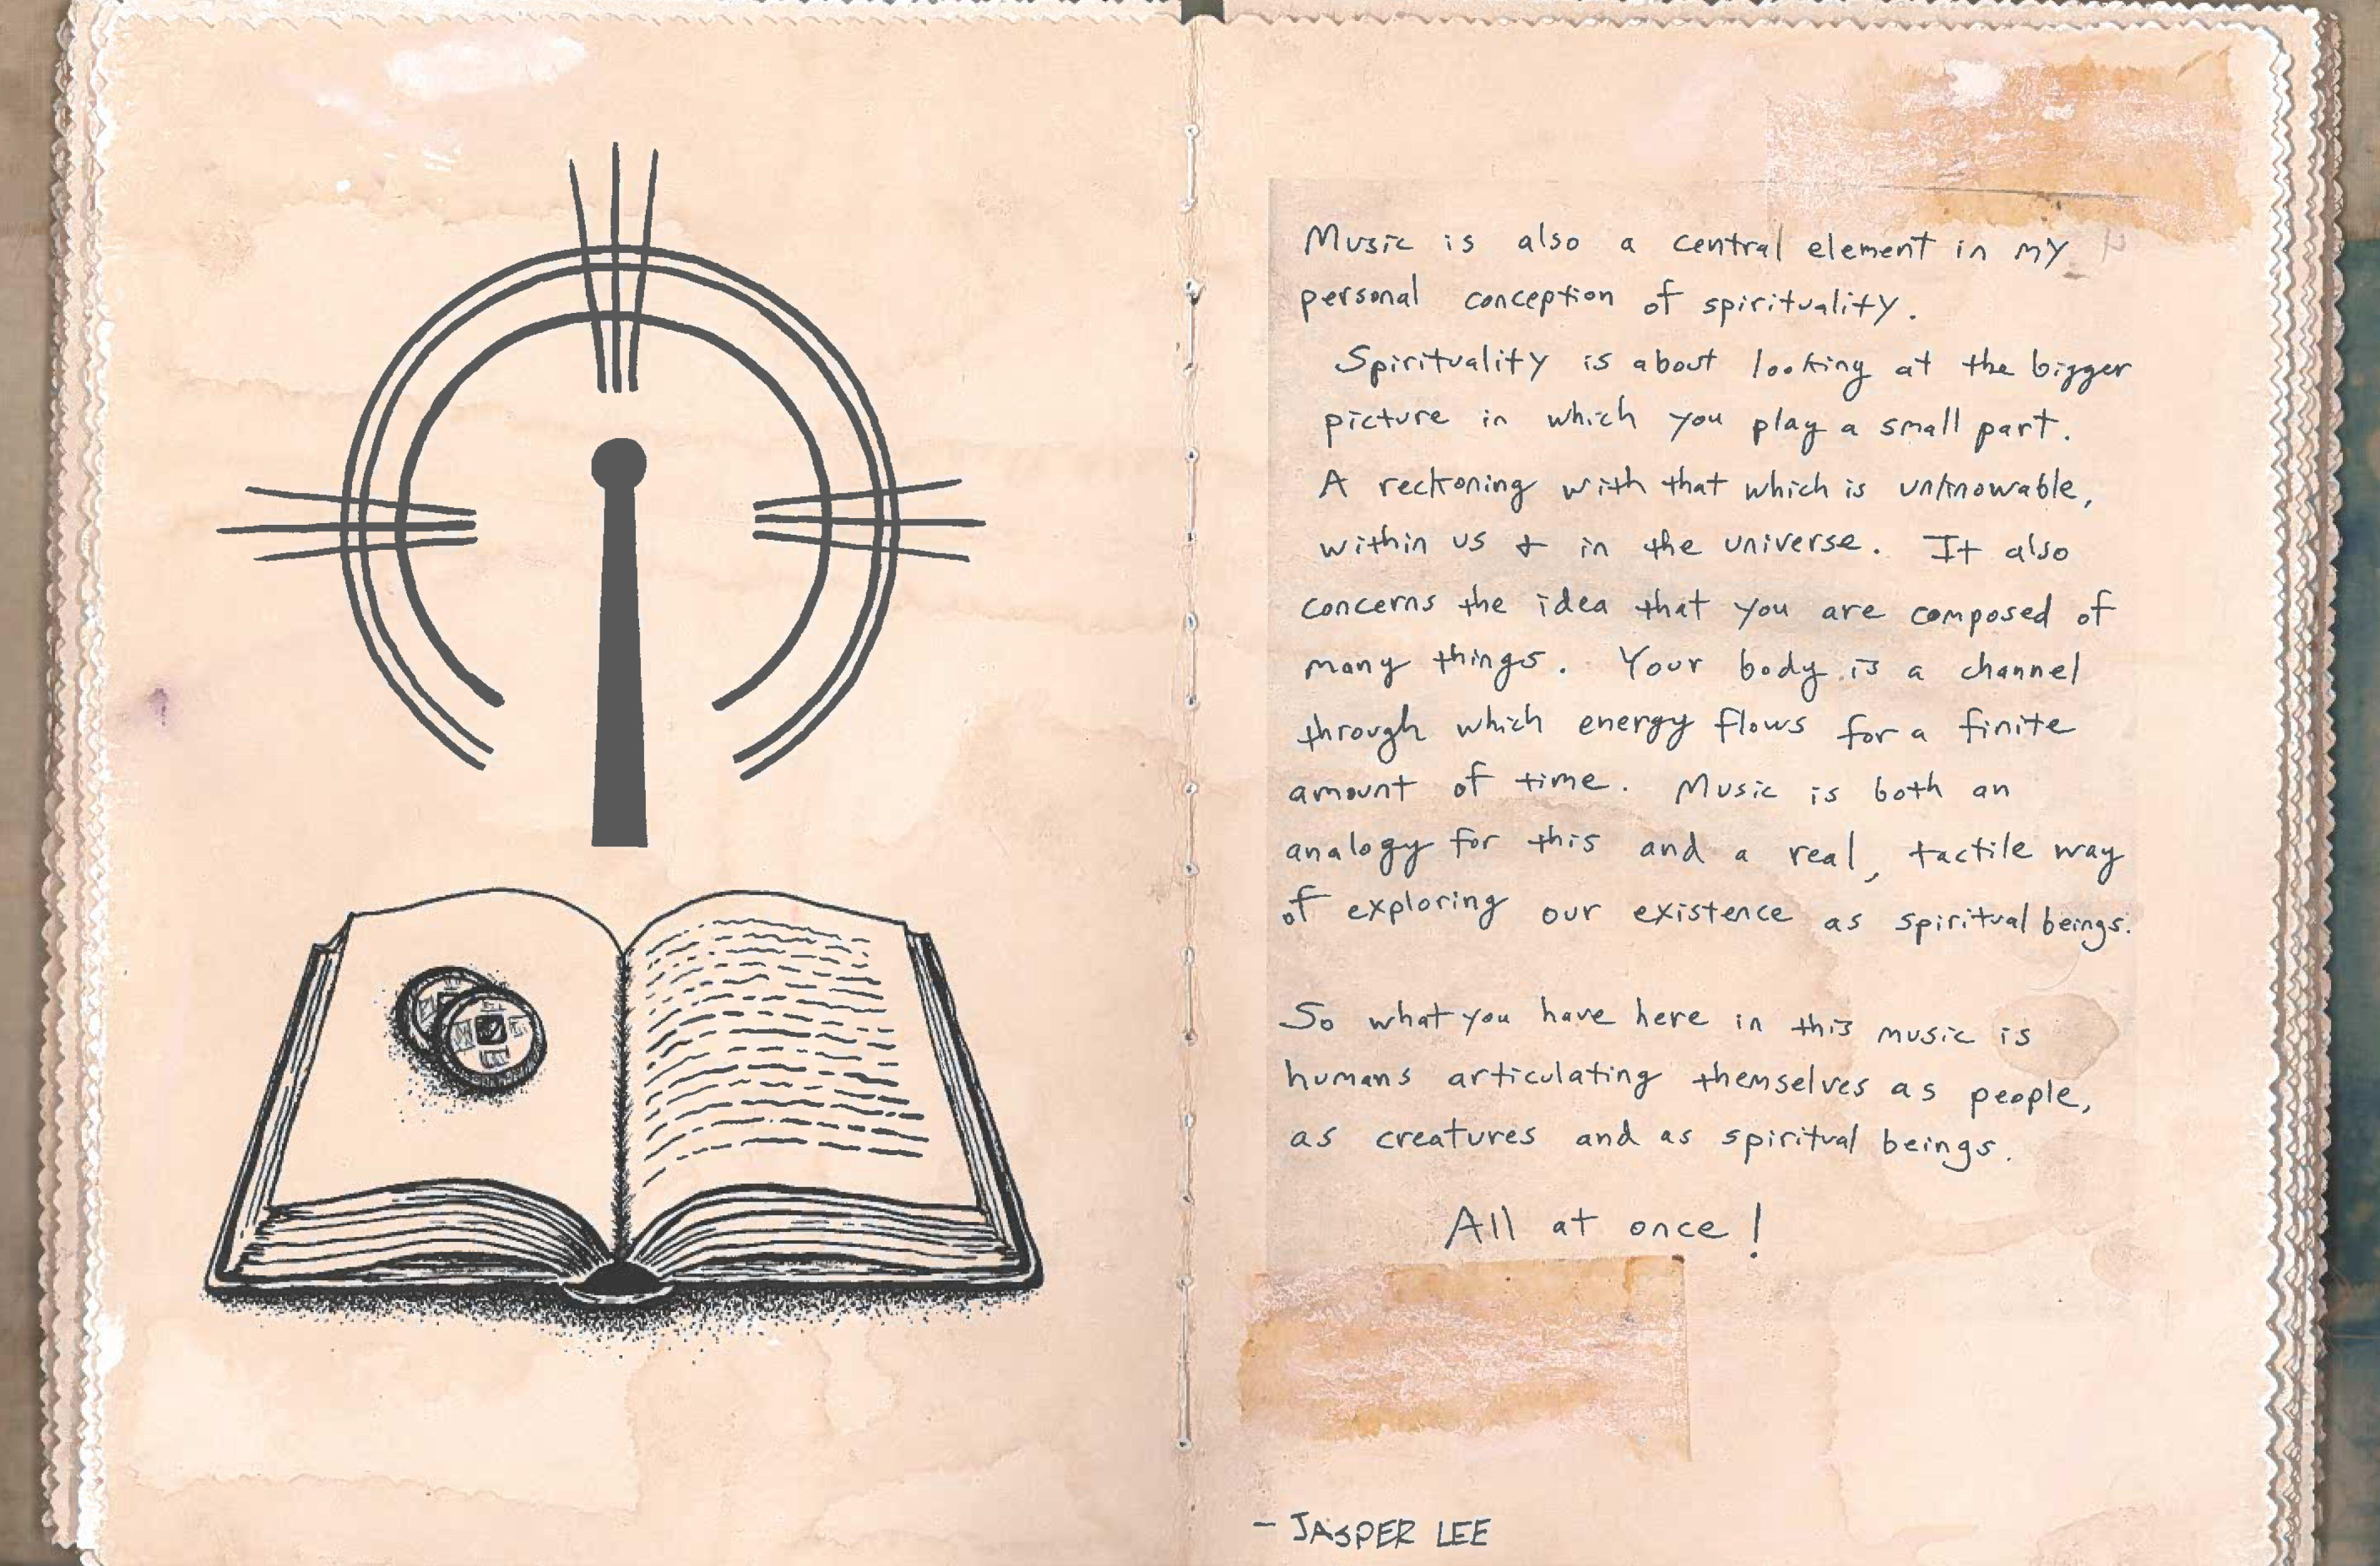 Music is also a central element in my
personal conception of spirituality.
Spirituality is about looking at the bigger
picture in which you play a small part.
A reckoning with that which is unknowable,
within us & in the universe. It also
concerns the idea that you are composed of
many things. Your body is a channel
through which energy flows for a finite
amount of time. Music is both an
analogy for this and a real, tactile way
of exploring our existence as spiritual beings.
So what you have here in this music is
humans articulating themselves as people,
as creatures and as spiritual beings.
All at once!
- JASPER LEE